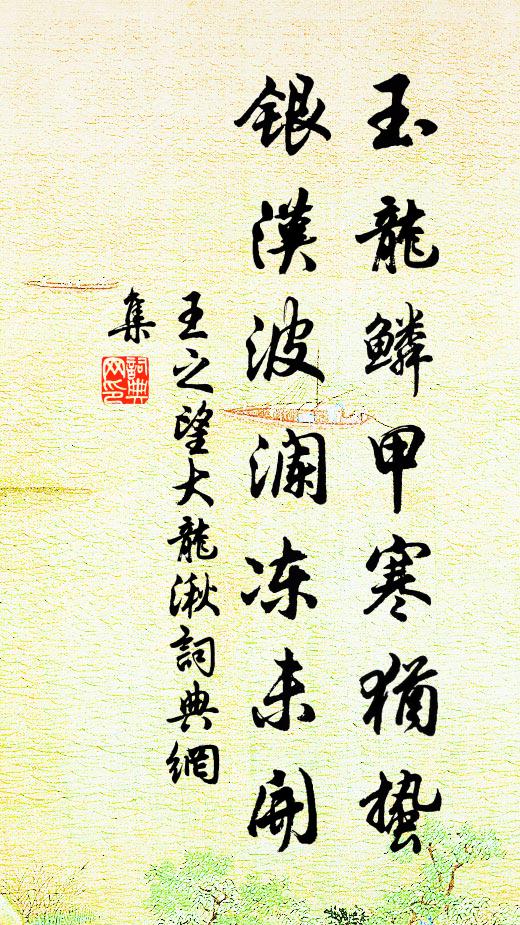 玉龍鱗甲寒猶蟄
銀漢波瀾冻未開
王之望大龍湫詞典網
集
詞典
网印